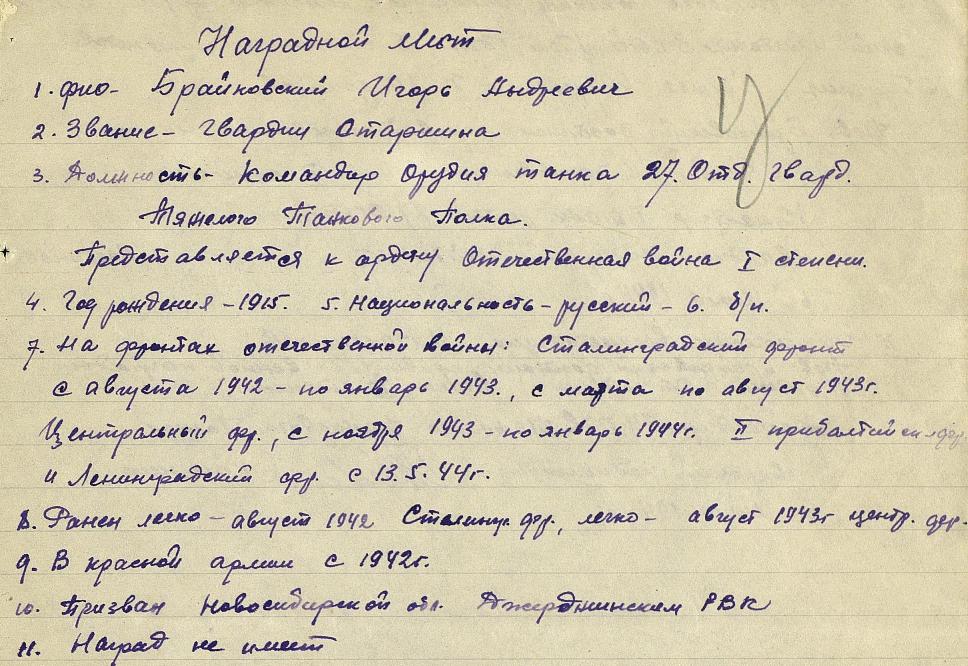 Наградной лист
1. фио- Брайковский Игорь Андреевич
2. Звание - Гвардии Старшина
3. Должность - Командир орудия танка 27. Отд. Гвард.
Тяжелого Танкового Полка.
Представляется к ордену Отечественная война I степени.
4. Год рождения - 1915. 5. Национальность - русский - 6. б/п.
7. На фронтах отечественной войны: Сталинградский фронт
с августа 1942 - по январь 1943., с марта по август 1943г.
Центральный фр., с ноября 1943 - по январь 1944г. II прибалтийский фр.
и Ленинградский фр. с 13.5.44г.
8. Ранен легко - август 1942 Сталингр. фр., легко - август 1943г центр. фр.
9. В красной армии с 1942г.
10. Призван Новосибирской обл. Дзержинским РВК
11. Наград не имеет